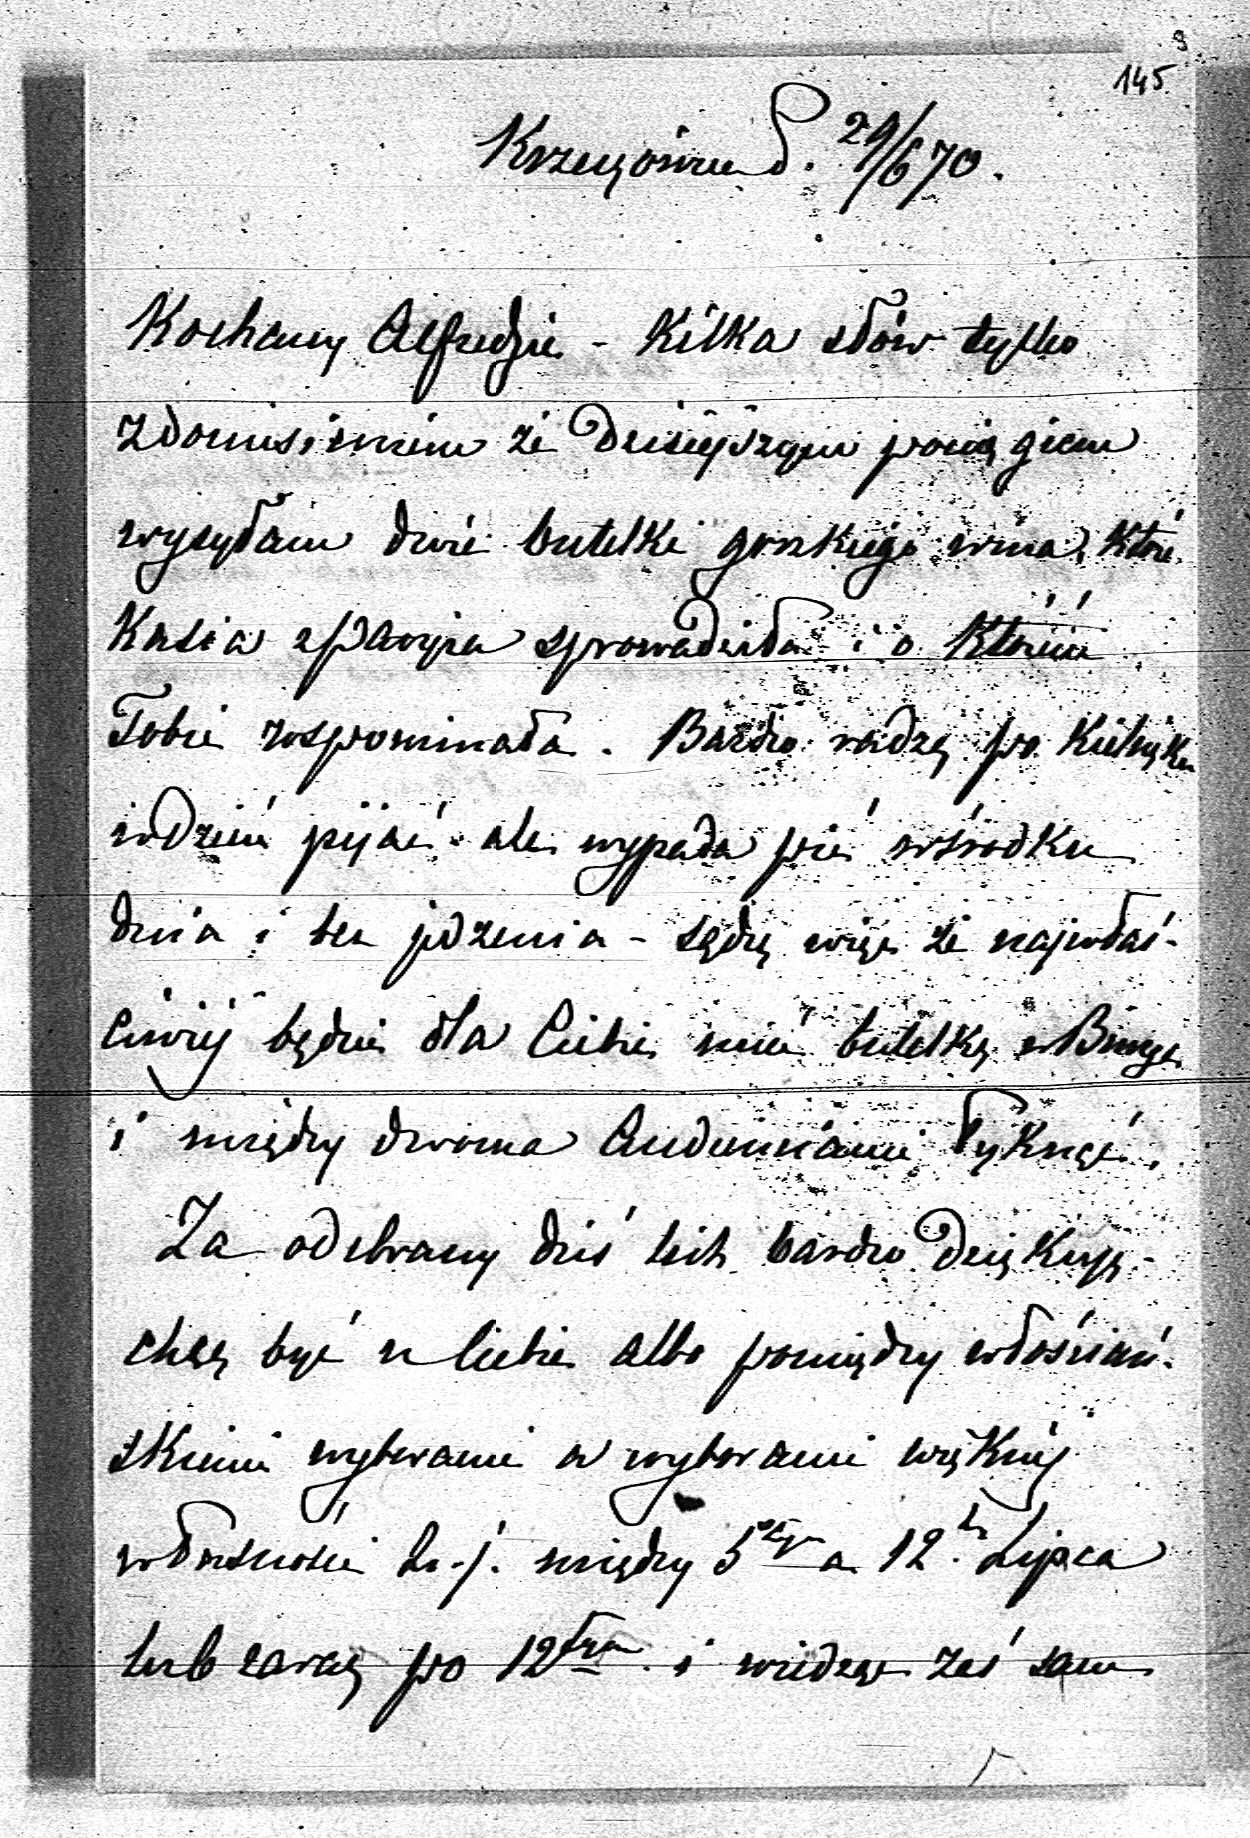 9
145
Krzeszowice d. 29/6 70.
Kochany Alfredzie - Kilka słów tylko
z doniesieniem że dzisiejszym pociągiem
wysyłam dwie butelki gorzkiego wina, które
Kasia z Paryża sprowadziła i o którém
Tobie wspominała. Bardzo radzę po kieliszku
w dzień pijać - ale wypada pić wśrodku
dnia i bez jedzenia - sądzę więc że najwłaś-
ciwiej będzie dla Ciebie mieć butelkę w Biurze
i między dwoma Audiencjami łyknąć.
Za odebrany dziś list bardzo dziękuję -
chcę być u Ciebie albo pomiędzy włościań-
skiemi wyborami a wyborami większéj
własności t. j. między 5tym a 12. Lipca
lub zaraz po 12tym. i widząc żeś sam